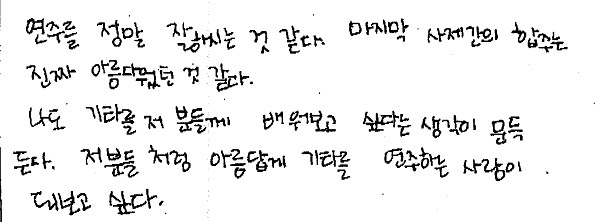 연주를 정말 잘하시는 것 같다. 마지막 사제간의 합주는
진짜 아름다웠던 것 같다.
나도 기타를 저 분들께 배워보고 싶다는 생각이 문득
든다. 저분들 처럼 아름답게 기타를 연주하는 사람이
돼보고 싶다.